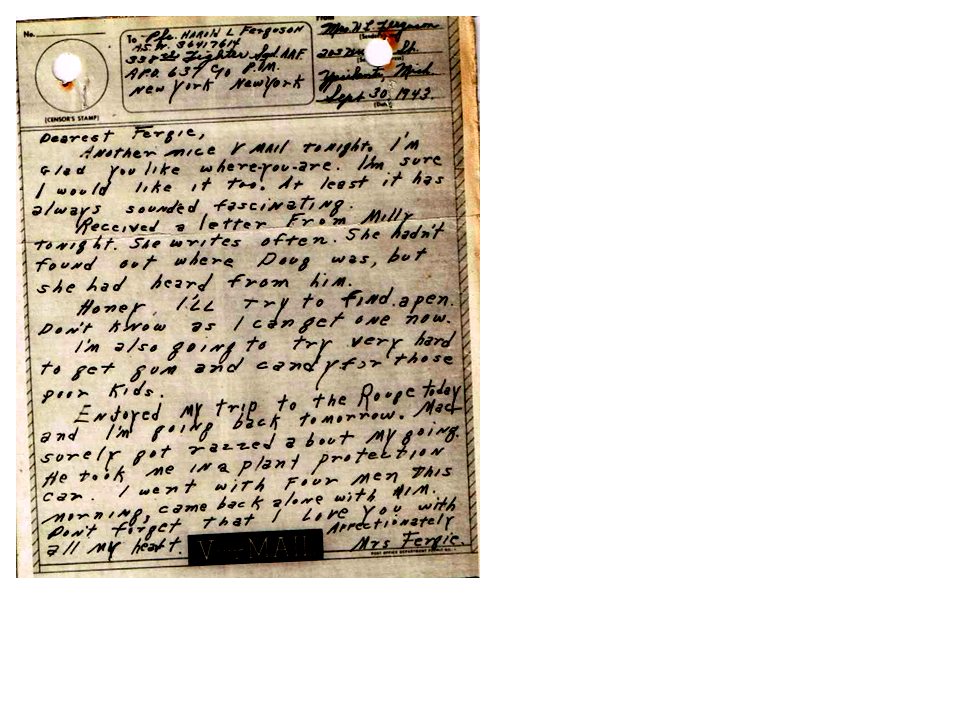 No.
To Pfc. Harold L Ferguson
A.S.N. 36417614
338th Fighter Sqd. AAF.
A.P.O. 637 c/o P.M.
New York New York
From
Mrs. H. L. Ferguson
(Sender's
203 St.
Ypsilanti, Mich.
Sept 30, 1943.
(Date)
(CENSOR'S STAMP)
Dearest Fergie,
Another nice V Mail tonight. I'm
glad you like where-you-are. I'm sure
I would like it too. At least it has
always sounded fascinating.
Received a letter From Milly
tonight. She writes often. She hadn't
found out where Doug was, but
she had heard from him.
Honey, I'll try to find a pen.
Don't know as I can get one now.
I'm also going to try very hard
to get gum and candy for those
poor kids.
Enjoyed my trip to the Rouge today
and I'm going back tomorrow. Mac
surely got razzed about my going.
He took me in a plant protection
car. I went with four men this
morning, came back alone with him.
Don't forget that I love you with
all my heart.
Affectionately
Mrs Fergie.
V-MAIL
POST OFFICE DEPARTMENT